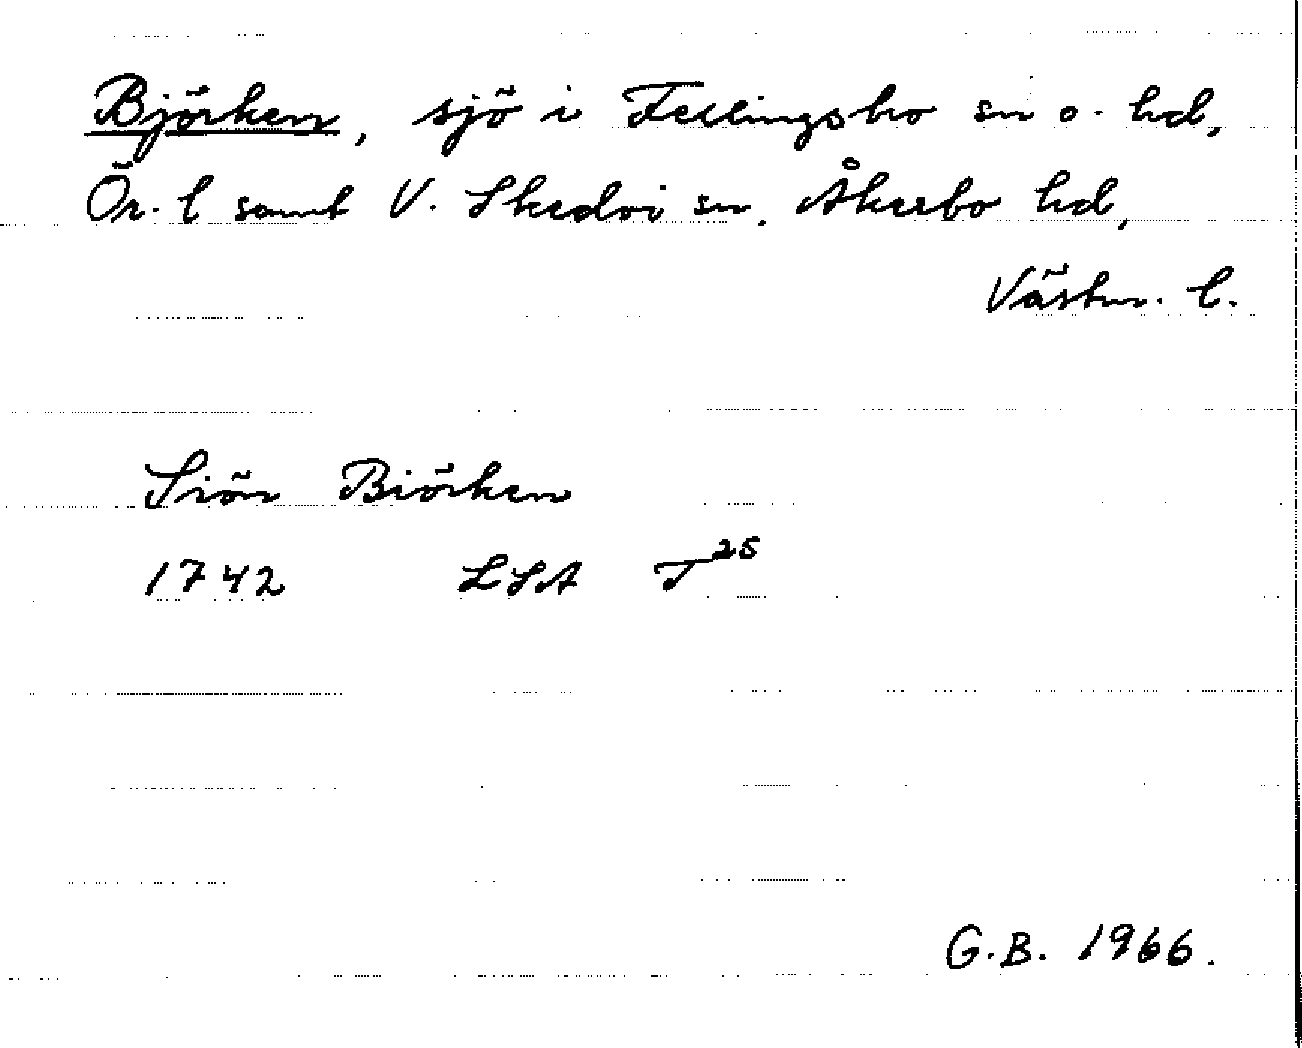 Björken, sjö i Fellingsbro sn o. hd,
Ör. l samt V. Skedvi sn, Åkerbo hd,
Västm. l.
Siön Biörken
1742 LSA T25
G.B. 1966.